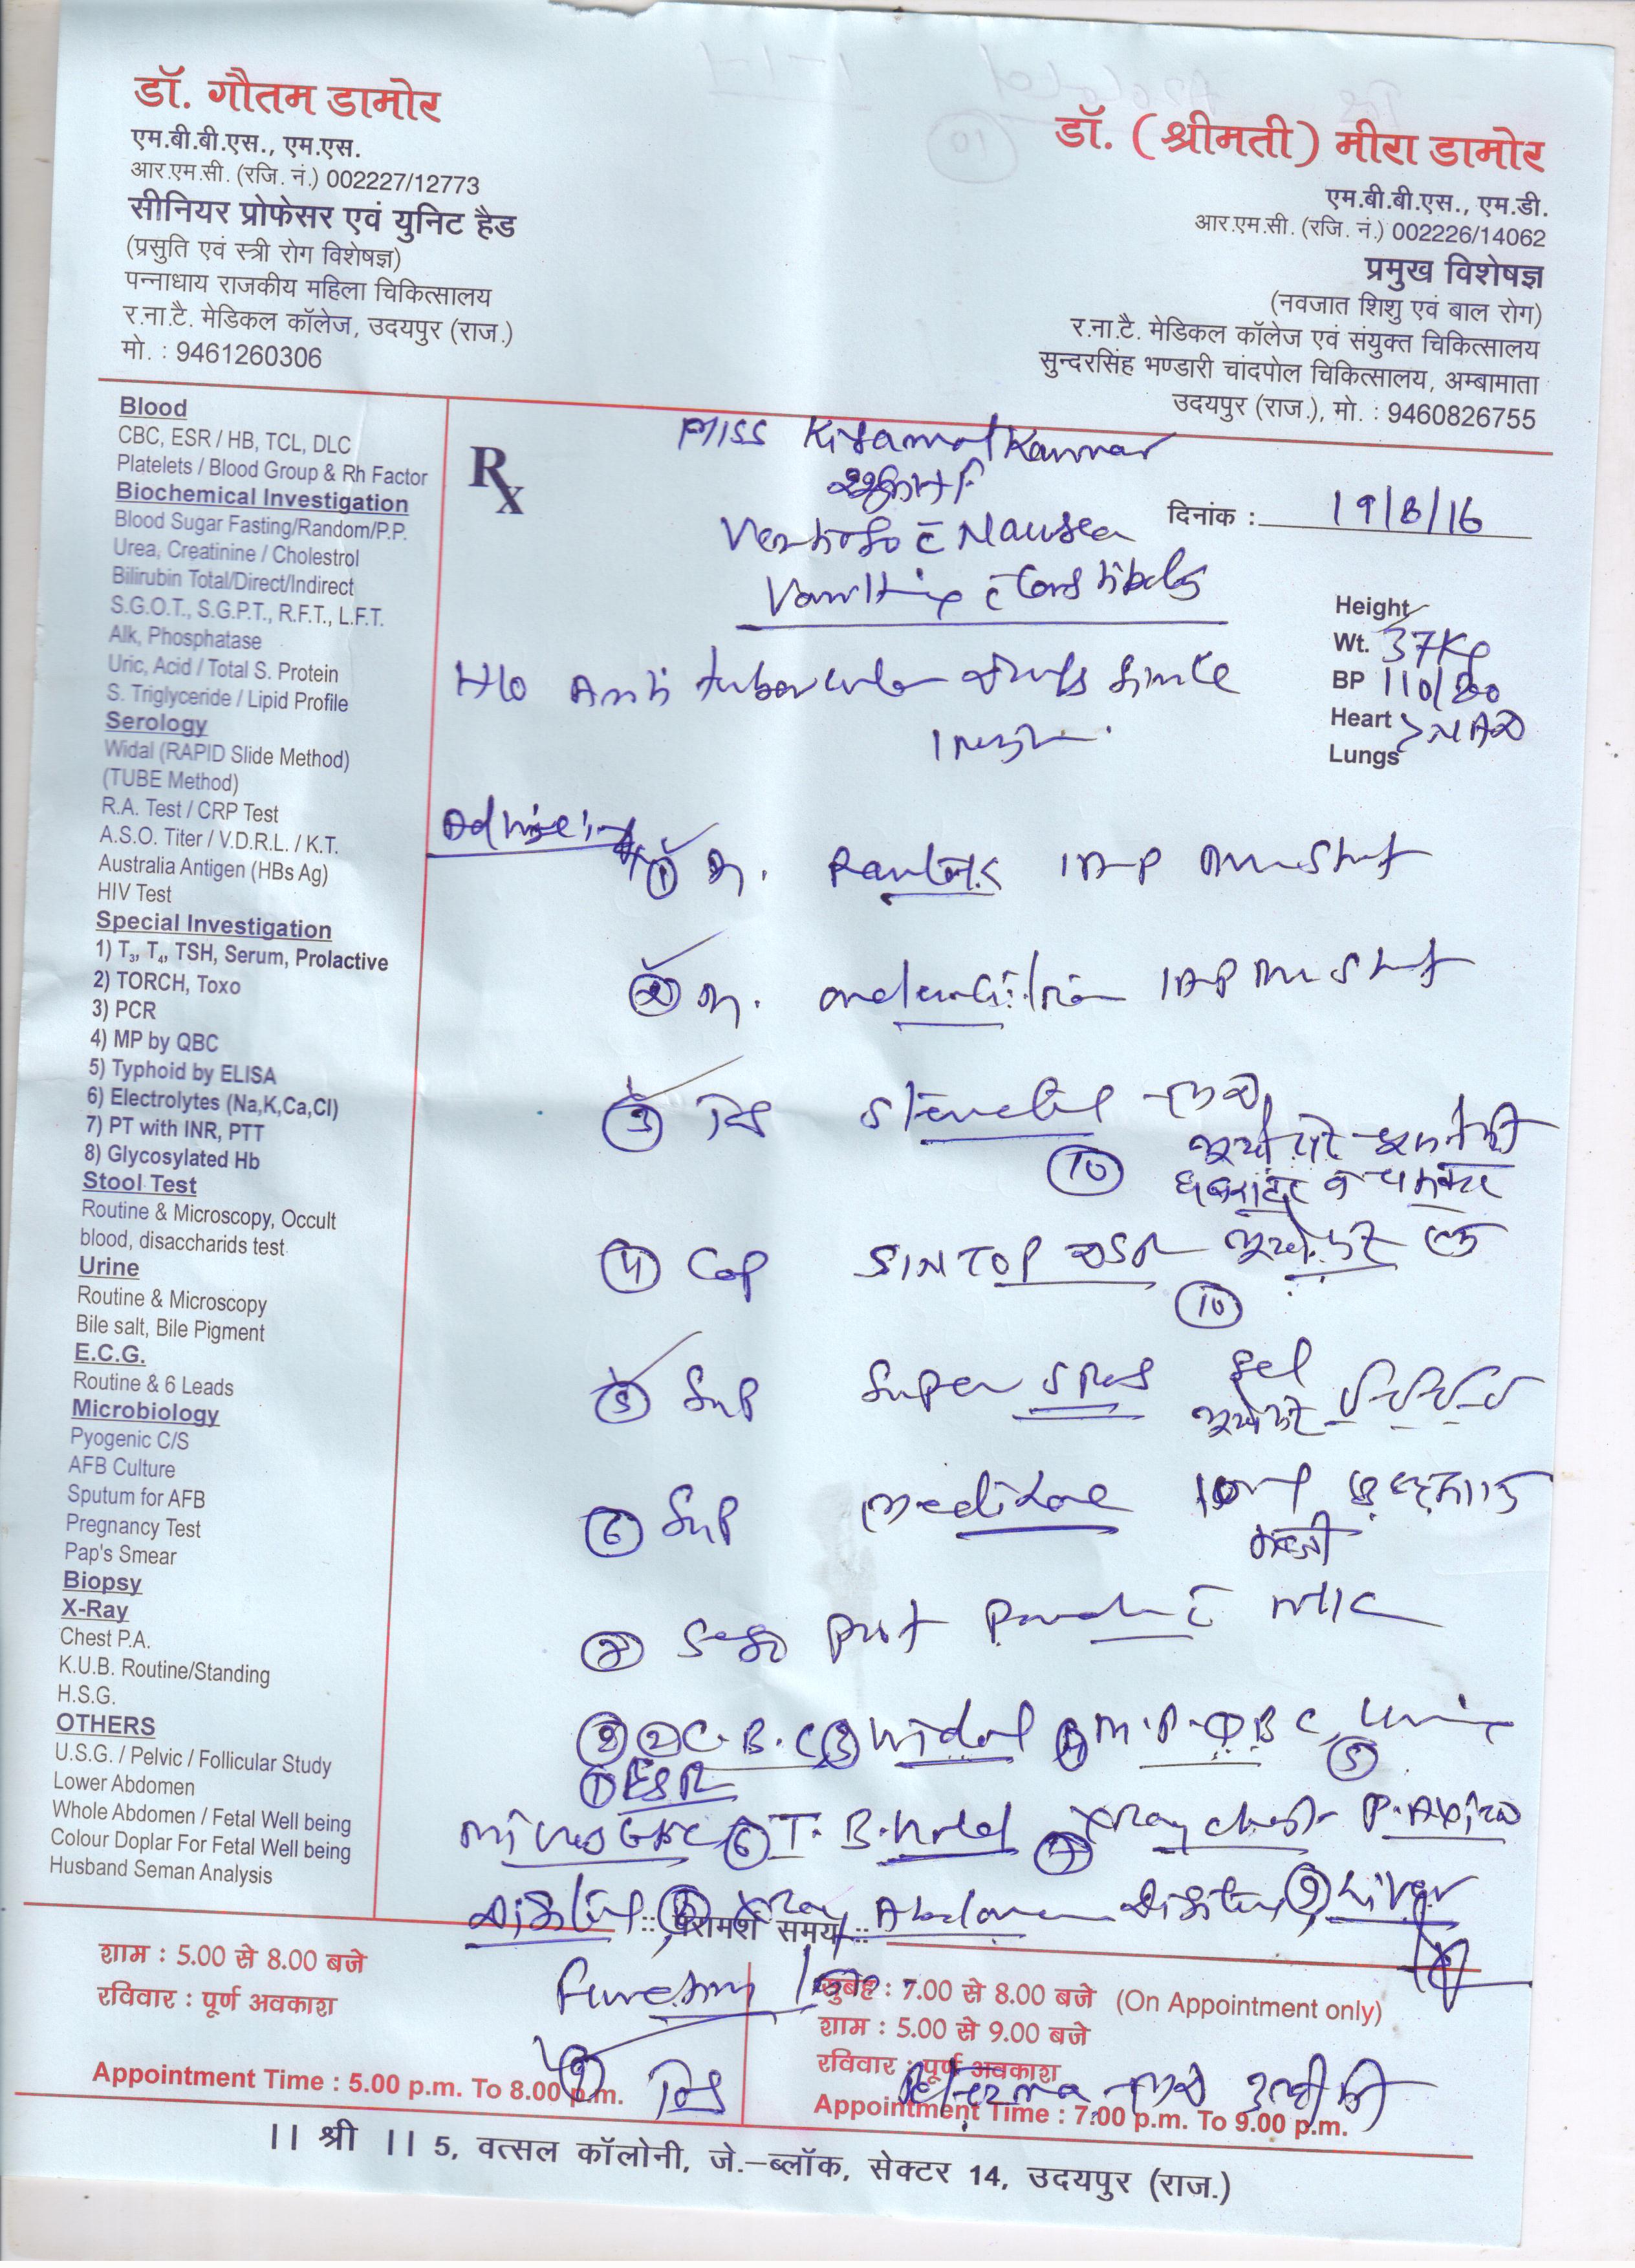 डॉ. गौतम डामोर
एम.बी.बी.एस., एम.एस.
आर.एम.सी. (रजि. नं.) 002227/12773
सीनियर प्रोफेसर एवं युनिट हैड
(प्रसुति एवं स्त्री रोग विशेषज्ञ)
पन्नाधाय राजकीय महिला चिकित्सालय
र.ना.टै. मेडिकल कॉलेज, उदयपुर (राज.)
मो. : 9461260306
डॉ. (श्रीमती) मीरा डामोर
एम.बी.बी.एस., एम.डी.
आर.एम.सी. (रजि. नं.) 002226/14062
प्रमुख विशेषज्ञ
(नवजात शिशु एवं बाल रोग)
र.ना.टै. मेडिकल कॉलेज एवं संयुक्त चिकित्सालय
सुन्दरसिंह भण्डारी चांदपोल चिकित्सालय, अम्बामाता
उदयपुर (राज.), मो. : 9460826755
Blood
CBC, ESR / HB, TCL, DLC
Platelets / Blood Group & Rh Factor
Biochemical Investigation
Blood Sugar Fasting/Random/P.P.
Urea, Creatinine / Cholestrol
Bilirubin Total/Direct/Indirect
S.G.O.T., S.G.P.T., R.F.T., L.F.T.
Alk, Phosphatase
Uric, Acid / Total S. Protein
S. Triglyceride / Lipid Profile
Serology
Widal (RAPID Slide Method)
(TUBE Method)
R.A. Test / CRP Test
A.S.O. Titer / V.D.R.L. / K.T.
Australia Antigen (HBs Ag)
HIV Test
Special Investigation
1) T3, T4, TSH, Serum, Prolactive
2) TORCH, Toxo
3) PCR
4) MP by QBC
5) Typhoid by ELISA
6) Electrolytes (Na,K,Ca,Cl)
7) PT with INR, PTT
8) Glycosylated Hb
Stool Test
Routine & Microscopy, Occult
blood, disaccharids test
Urine
Routine & Microscopy
Bile salt, Bile Pigment
E.C.G.
Routine & 6 Leads
Microbiology
Pyogenic C/S
AFB Culture
Sputum for AFB
Pregnancy Test
Pap's Smear
Biopsy
X-Ray
Chest P.A.
K.U.B. Routine/Standing
H.S.G.
OTHERS
U.S.G. / Pelvic / Follicular Study
Lower Abdomen
Whole Abdomen / Fetal Well being
Colour Doplar For Fetal Well being
Husband Seman Analysis
Rx
Miss Kanwar
दिनांक : 19/8/16
Vertigo c̄ Nausea
Vomiting c̄
Height
Wt. 37Kg
BP 110/80
Heart > NAD
Lungs
H/o Anti tubercular drugs since
Advise
① Pantok 1 Amp
② 1 Amp
③ Tab Stemetil
⑩
④ Cap SINTOP DSR भूखे पेट
⑩
⑤ Syp Super spas gel
भूखे पेट
⑥ Syp 10ml
⑦ Powder c̄ milk
② C.B.C ③ Widal ④ M.P. QBC, Urine
① ESR ⑤
⑥ T.B. Gold ⑦ Xray chest
Digital ⑧ Xray Abdomen Digital ⑨ Liver
Function
⑨ Tab
:: परामर्श समय ::
शाम : 5.00 से 8.00 बजे
रविवार : पूर्ण अवकाश
Appointment Time : 5.00 p.m. To 8.00 p.m.
सुबह : 7.00 से 8.00 बजे (On Appointment only)
शाम : 5.00 से 9.00 बजे
रविवार : पूर्ण अवकाश
Appointment Time : 7:00 p.m. To 9.00 p.m.
|| श्री || 5, वत्सल कॉलोनी, जे.-ब्लॉक, सेक्टर 14, उदयपुर (राज.)